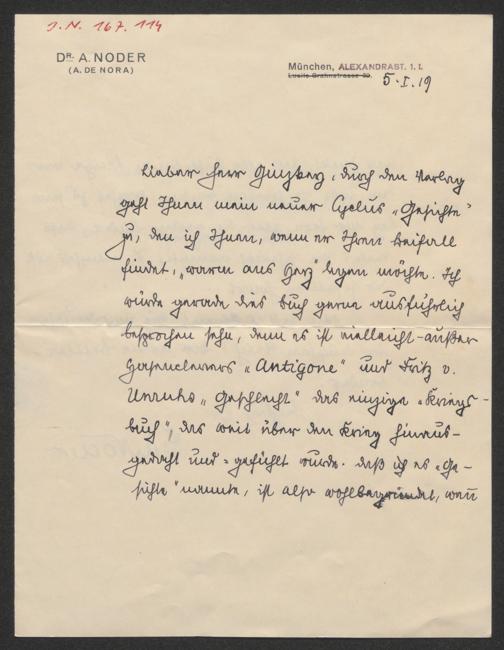 J.N. 167.114
DR. A. NODER
(A. DE NORA)
München, ALEXANDRAST. 1. I.
Lucile Grahnstrasse
5.I.19
Lieber Herr Ginzkey, durch den Verlag
geht Ihnen mein neuer Cyclus „Gesichte"
zu, den ich Ihnen, wenn er Ihren Beifall
findet, „warm ans Herz" legen möchte. Ich
würde gerade das Buch gerne ausführlich
besprochen sehn, denn es ist vielleicht – außer
Hasenclevers „Antigone" und Fritz v.
Unruhs „Geschlecht" das einzige „Kriegs-
buch", das weit über den Krieg hinaus-
gedacht und = gefühlt wurde. Daß ich es „Ge-
sichte" nannte, ist also wohlbegründet, wenn